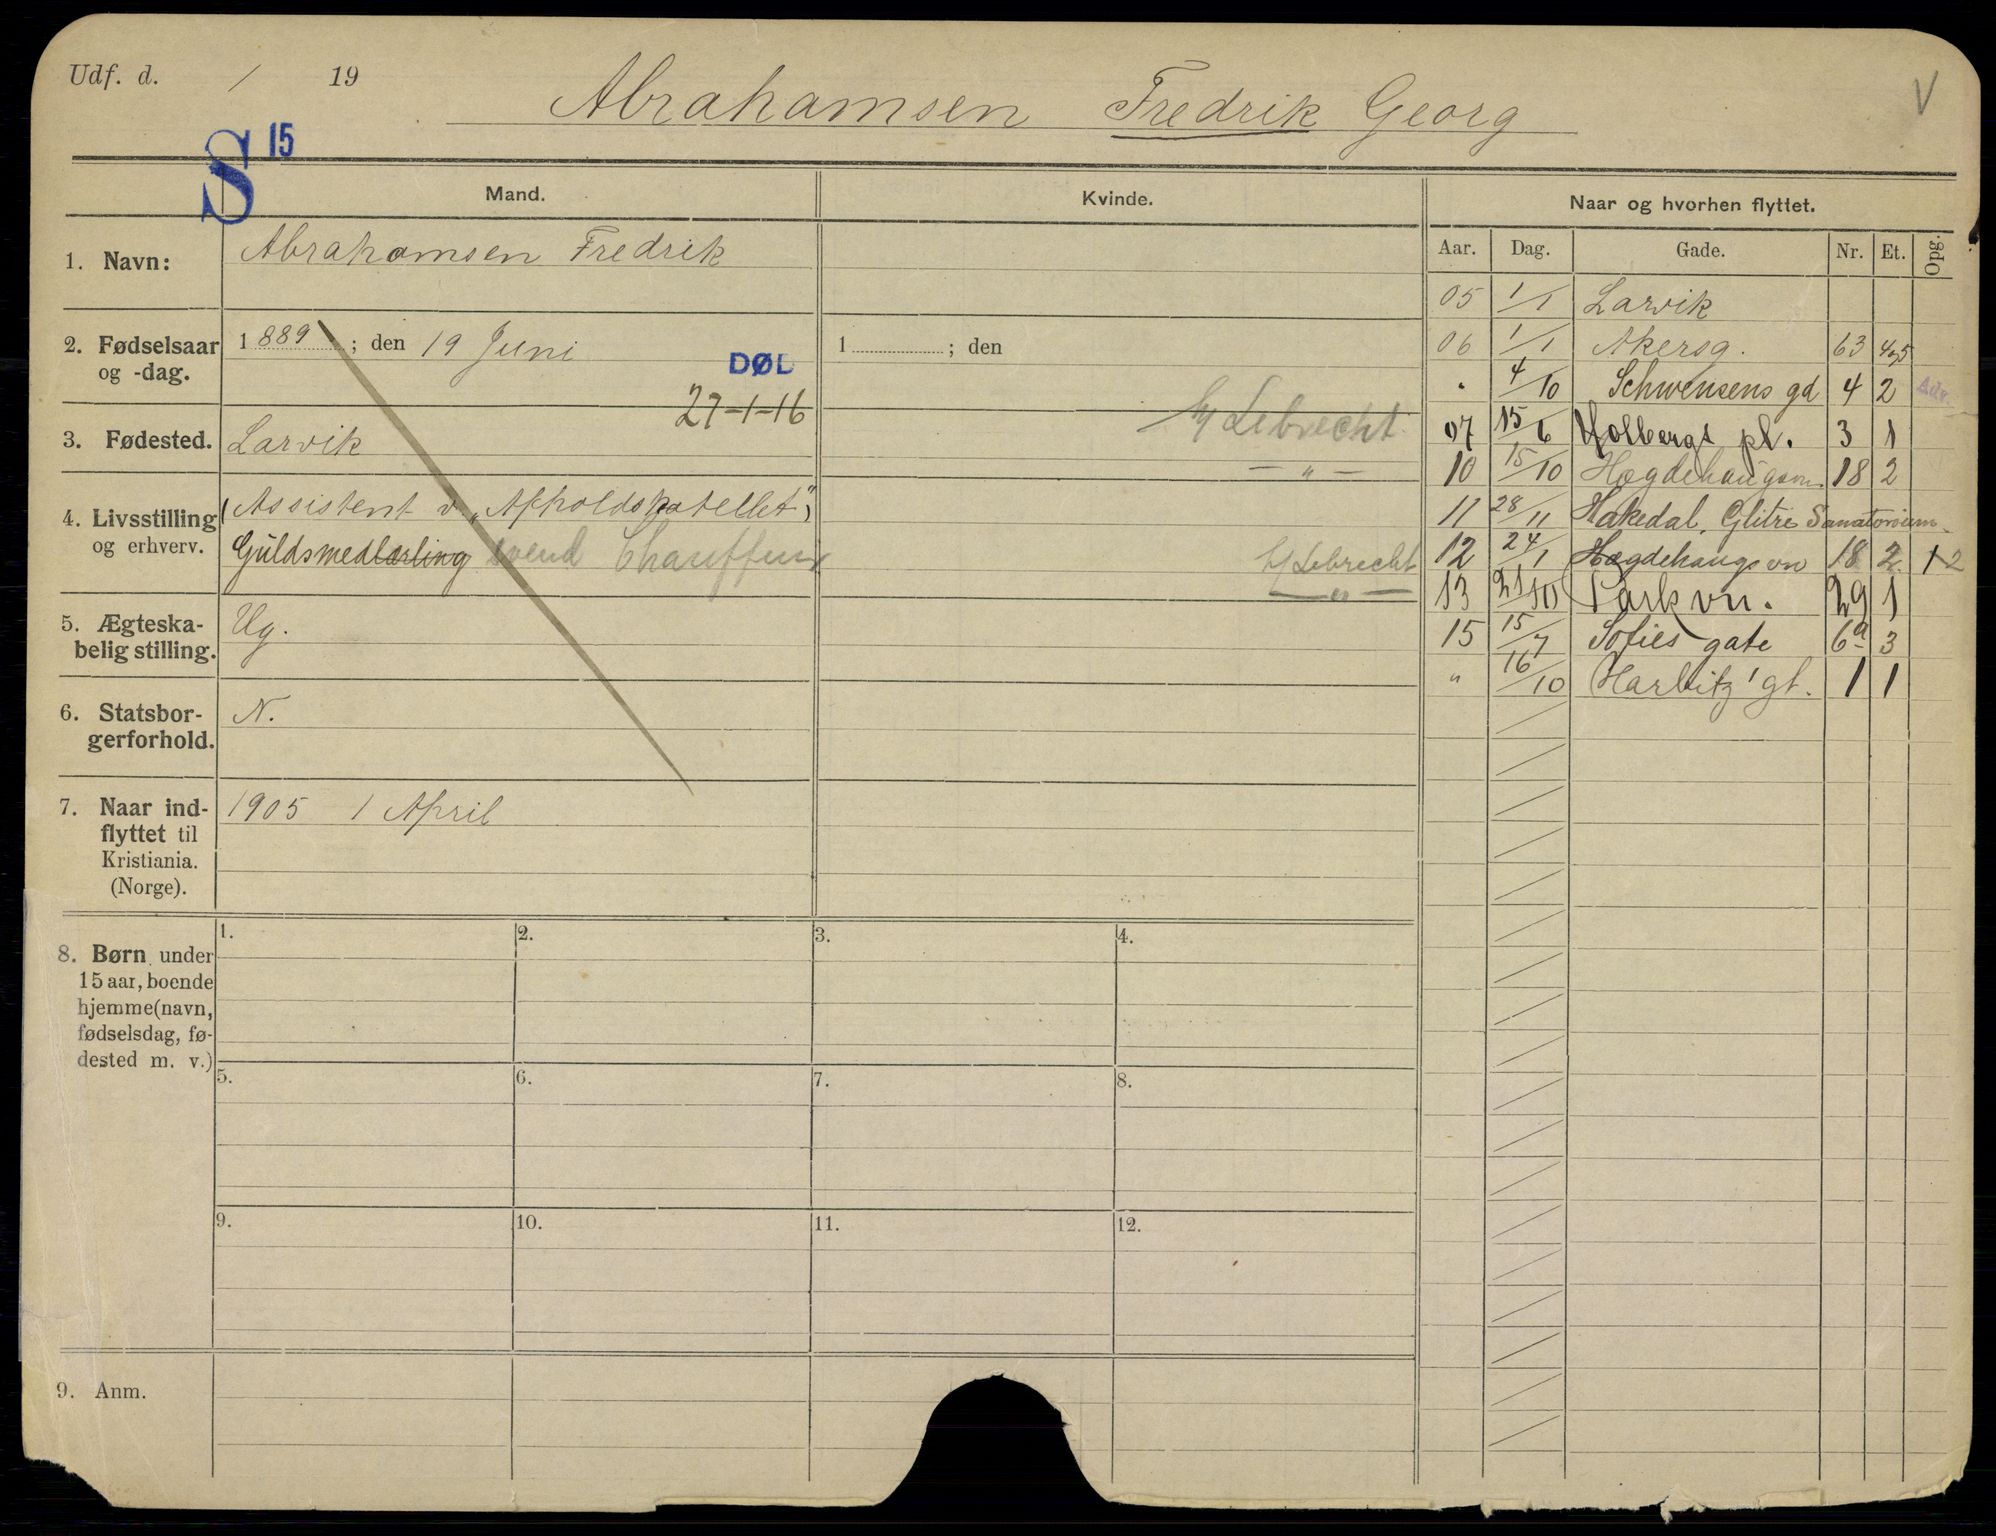 Udf. d. / 19
Abrahamsen Fredrik Georg
V
S 15
Mand. Kvinde. Naar og hvorhen flyttet.
Aar. Dag. Gade. Nr. Et. Opg.
1. Navn: Abrahamsen Fredrik
2. Fødselsaar og -dag. 1889; den 19 Juni
1 ; den
DØD
27-1-16
3. Fødested. Larvik
4. Livsstilling og erhverv. (Assistent v. „Apholdskatellet")
Guldsmedlærling svend Chauffeur
Lebrecht
— " —
Lebrecht
— " —
5. Ægteskabelig stilling. Ug.
6. Statsborgerforhold. N.
7. Naar indflyttet til Kristiania. (Norge). 1905 1 April
05 1/1 Larvik
06 1/1 Akersg. 63 4og5
" 4/10 Schwensens gd 4 2
07 15/6 Holbergs pl. 3 1
10 15/10 Hægdehaugsvn. 18 2
11 28/11 Hakedal, Glitre Sanatorium
12 24/1 Hægdehaugsvn 18 2 12
13 21/10 Parkvn. 29 1
15 15/7 Sofies gate 6a 3
" 16/10 Harbitz' gt. 1 1
8. Børn under
15 aar, boende
hjemme (navn,
fødselsdag, fø-
dested m. v.)
1. 2. 3. 4.
5. 6. 7. 8.
9. 10. 11. 12.
9. Anm.